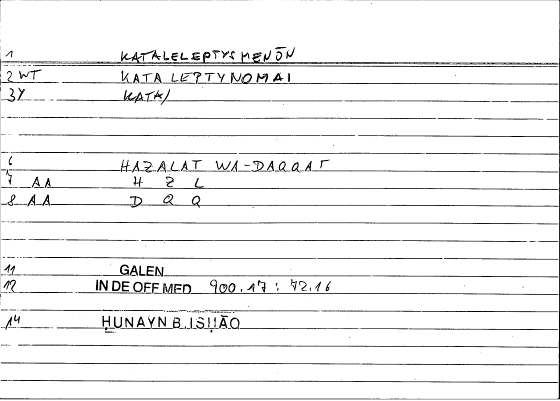 1 KATALELEPTYSMENŌN
2 WT KATA LEPTYNOMAI
3Y KATA/
6 HAZALAT WA-DAQQAT
7 AA H Z L
8 AA D Q Q
11 GALEN
12 IN DE OFF MED 900.17 : 72.16
14 ḤUNAYN B. ISḤĀQ